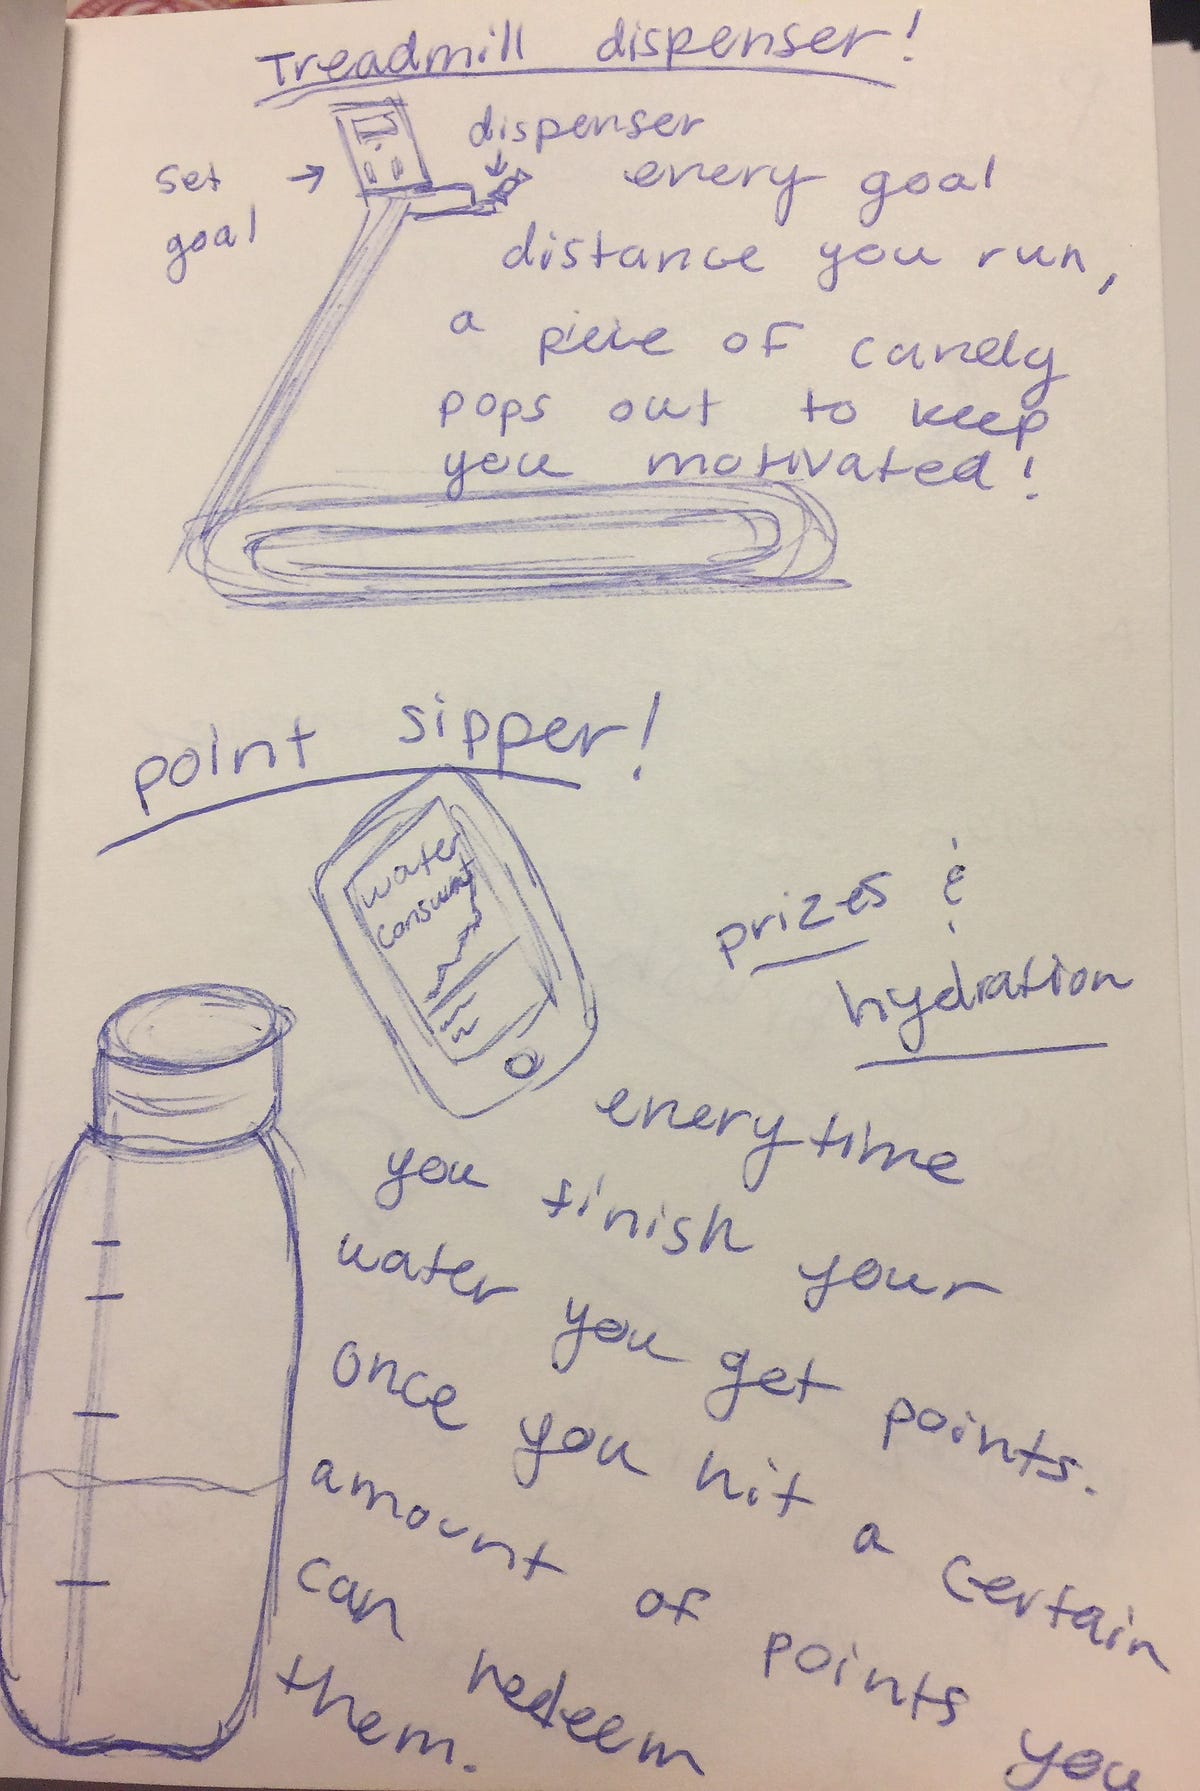 Treadmill dispenser!
dispenser
set
goal
every goal
distance you run,
a piece of candy
pops out to keep
you motivated!
point sipper!
water
consumed
prizes &
hydration
everytime
you finish your
water you get points.
once you hit a certain
amount of points you
can redeem
them.